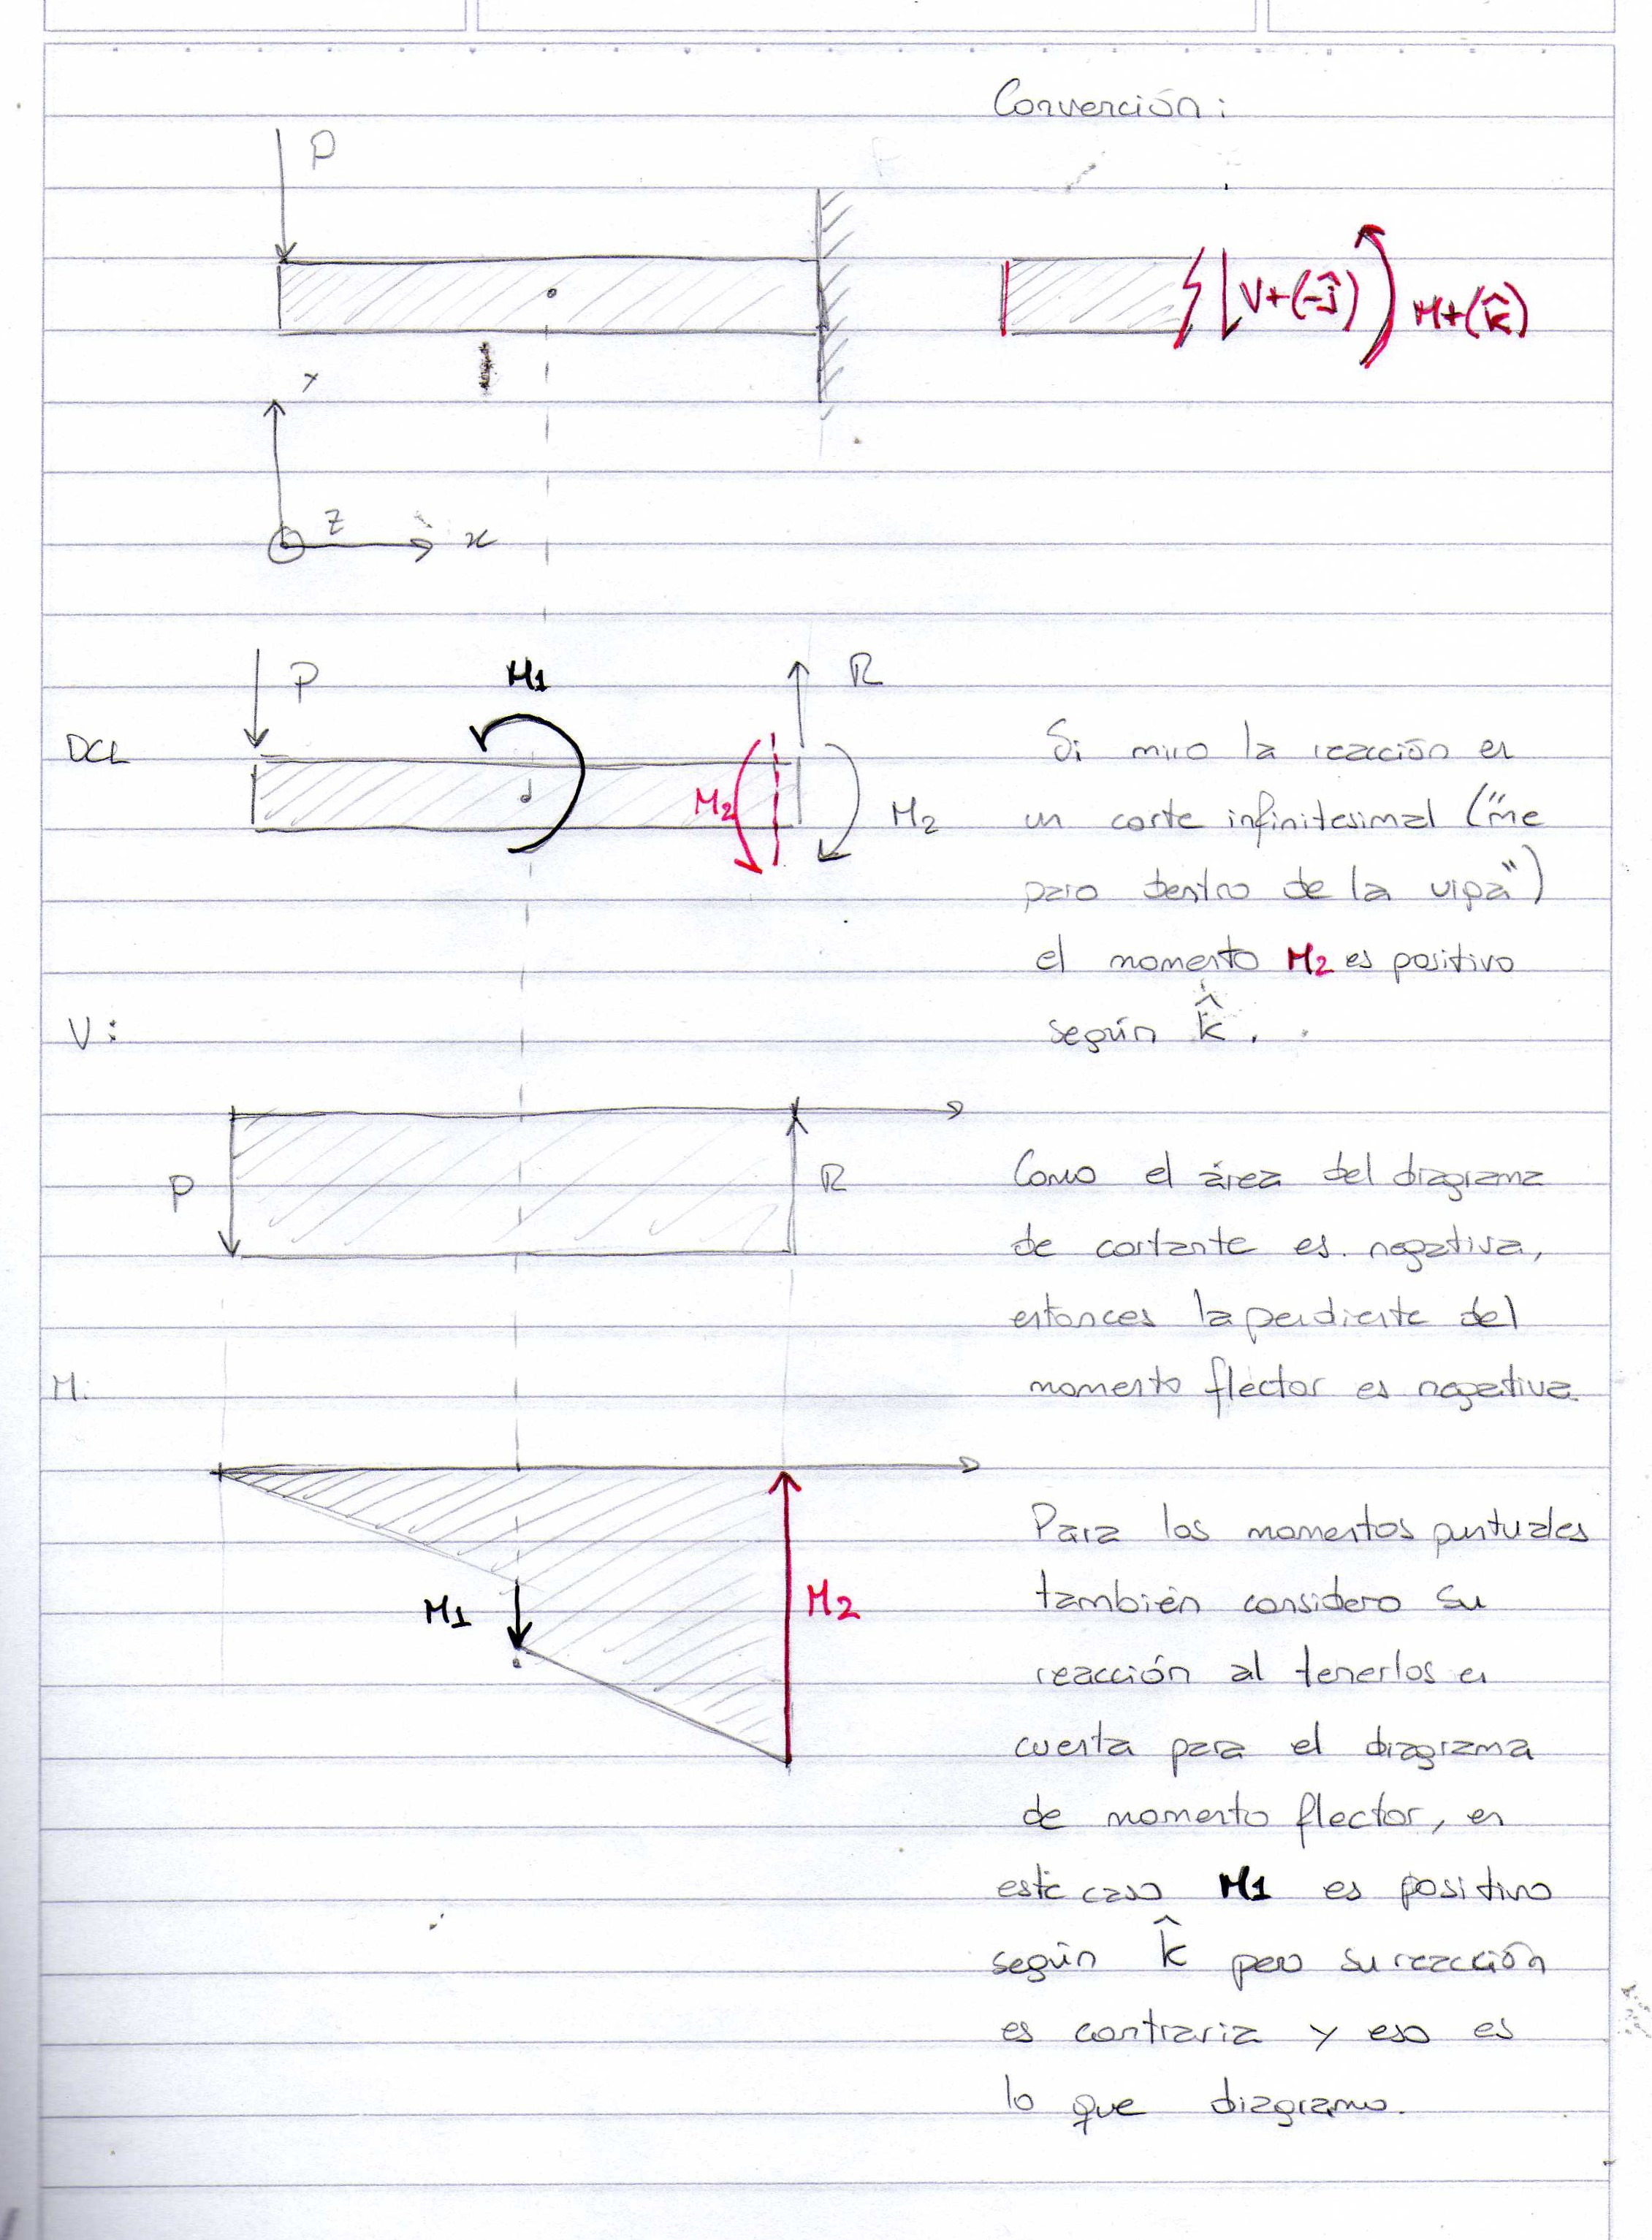 Convención:
P
V+(-ĵ)
M+(k̂)
y
z
x
P
M1
R
DCL
M2
M2
Si miro la reacción en
un corte infinitesimal ("me
paro dentro de la viga")
el momento M2 es positivo
según k̂.
V:
P
R
Como el área del diagrama
de cortante es negativa,
entonces la pendiente del
momento flector es negativa
M:
M1
M2
Para los momentos puntuales
también considero su
reacción al tenerlos en
cuenta para el diagrama
de momento flector, en
este caso M1 es positivo
según k̂ pero su reacción
es contraria y eso es
lo que diagramo.